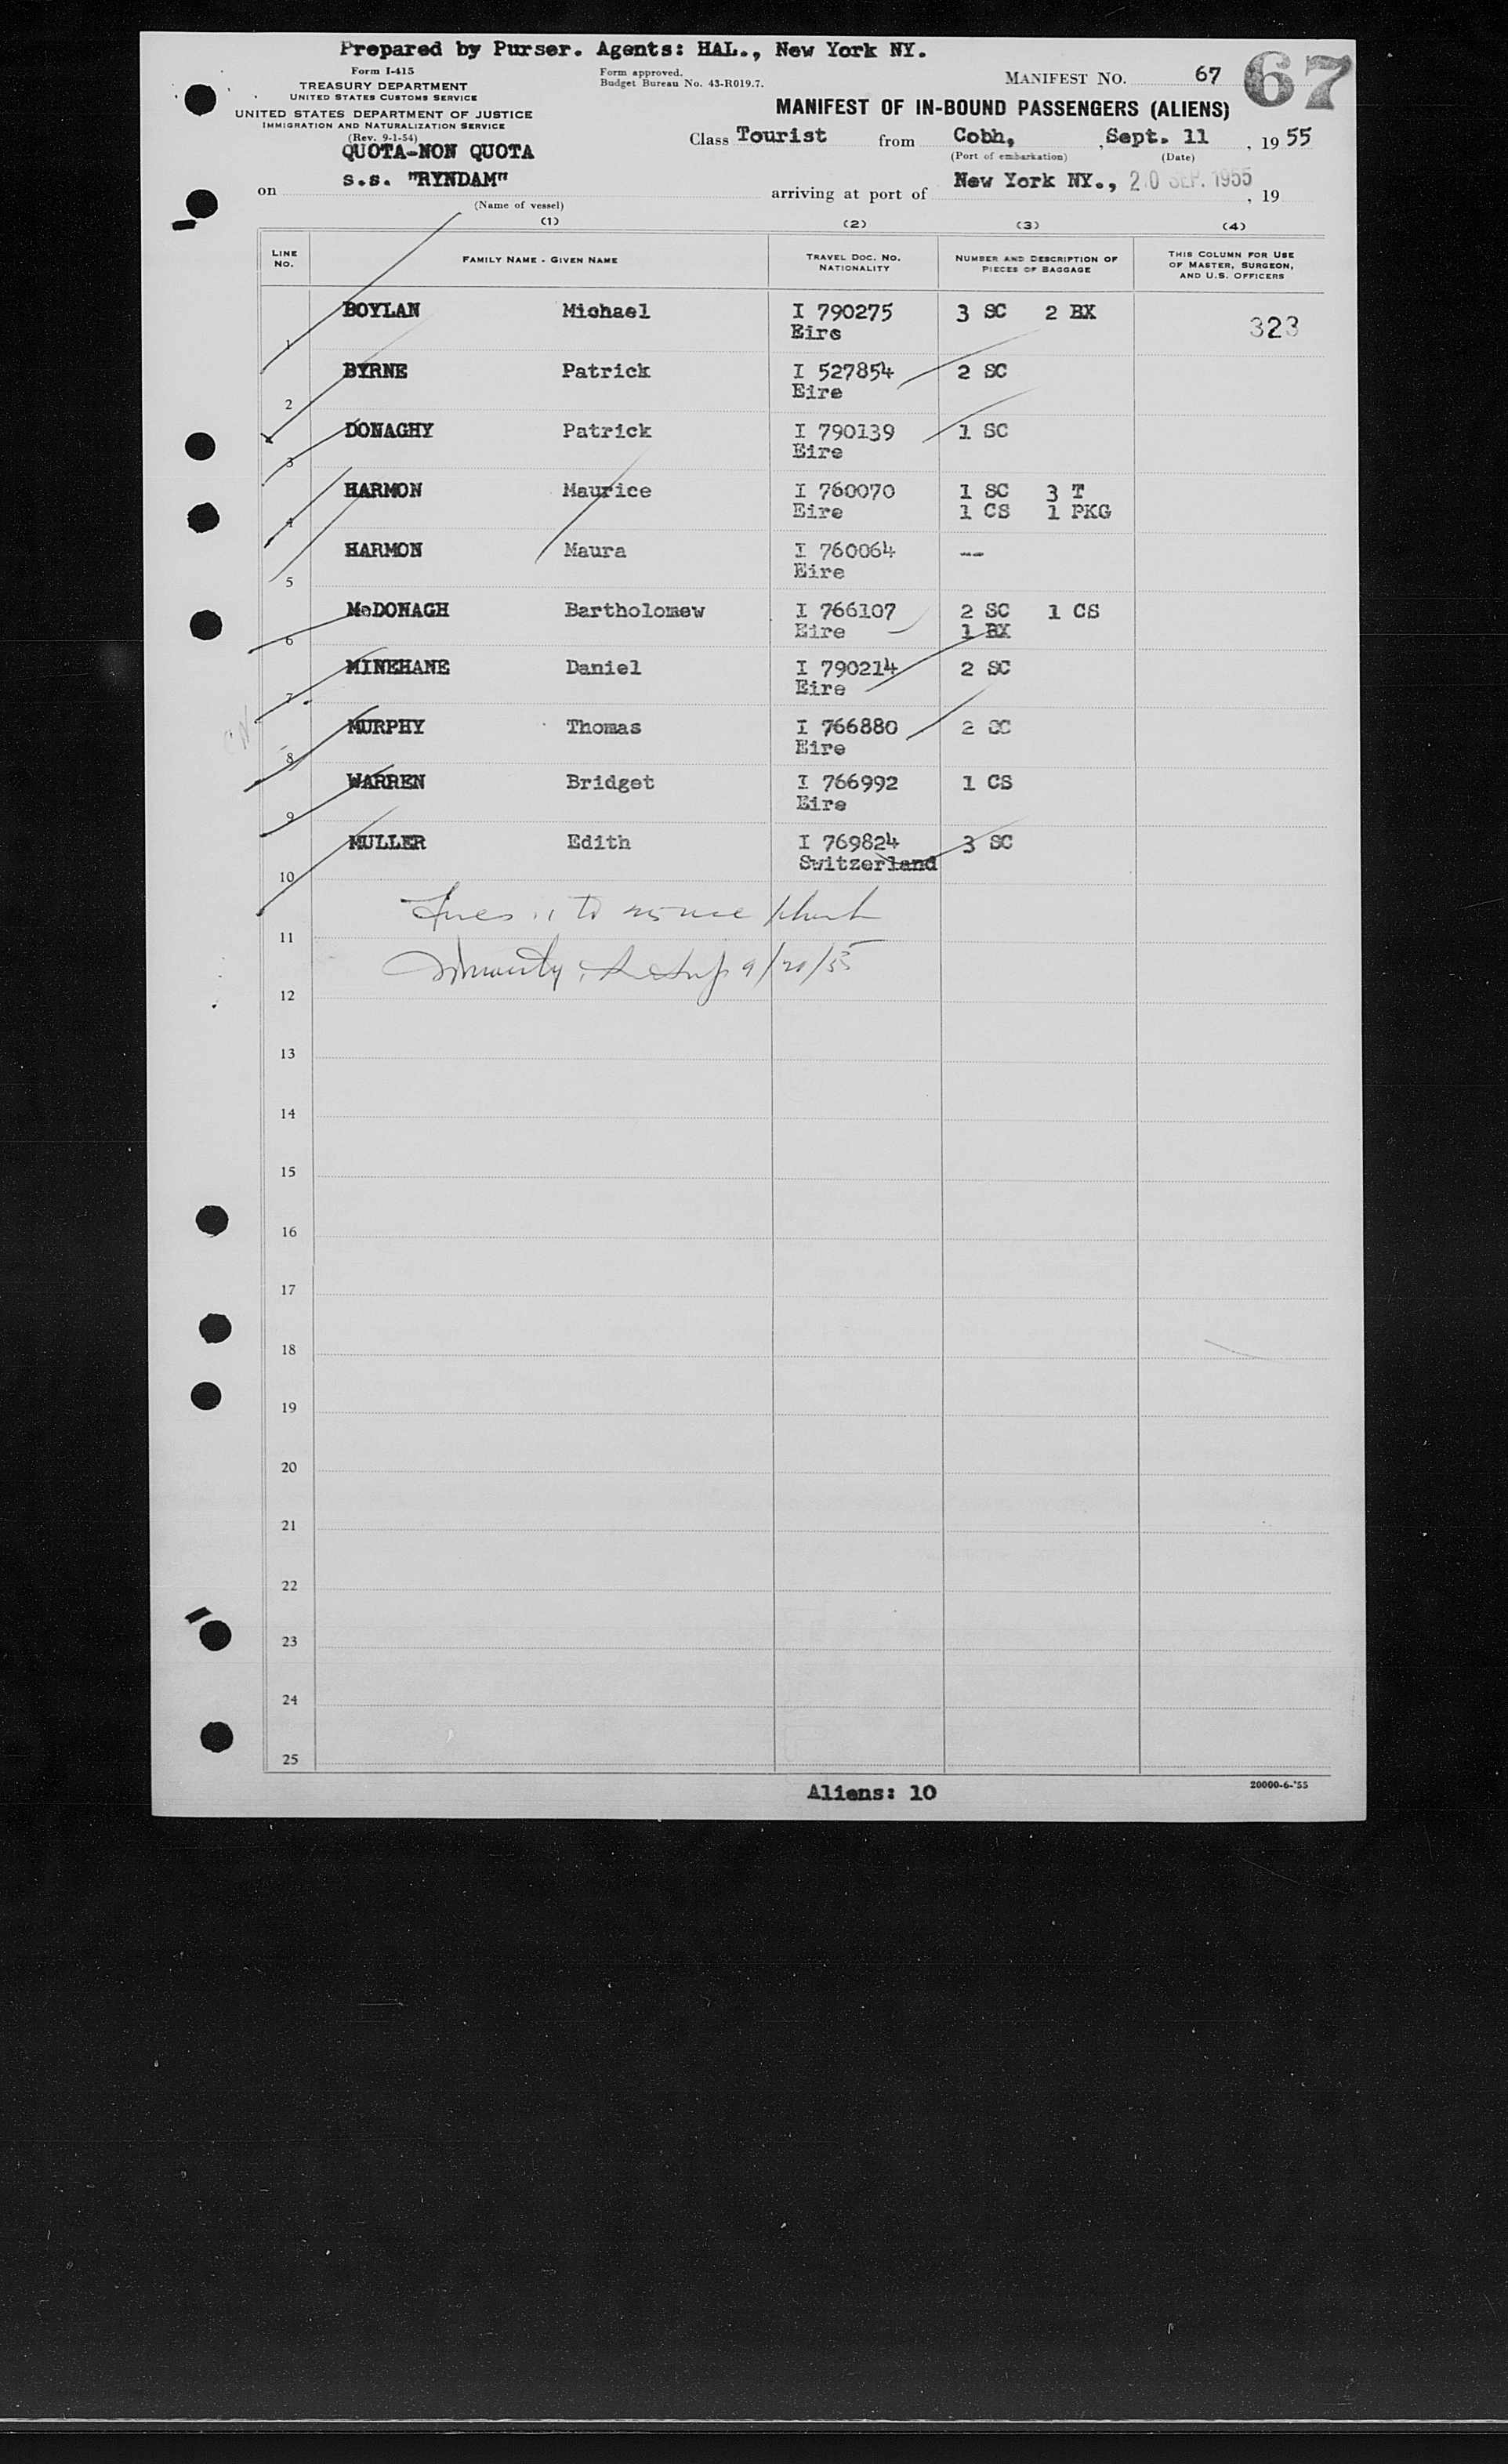 Prepared by Purser. Agents: HAL., New York NY.
Form I-415
TREASURY DEPARTMENT
UNITED STATES CUSTOMS SERVICE
UNITED STATES DEPARTMENT OF JUSTICE
IMMIGRATION AND NATURALIZATION SERVICE
(Rev. 9-1-54)
Form approved.
Budget Bureau No. 43-R019.7.
MANIFEST NO. 67 67
MANIFEST OF IN-BOUND PASSENGERS (ALIENS)
QUOTA-NON QUOTA
Class Tourist from Cobh, , Sept. 11 , 19 55
(Port of embarkation) (Date)
on s.s. "RYNDAM" arriving at port of New York NY., 20 SEP. 1955 , 19
(Name of vessel)
(1) (2) (3) (4)
LINE NO. FAMILY NAME - GIVEN NAME TRAVEL DOC. NO. NATIONALITY NUMBER AND DESCRIPTION OF PIECES OF BAGGAGE THIS COLUMN FOR USE OF MASTER, SURGEON, AND U.S. OFFICERS
1 BOYLAN Michael I 790275 3 SC 2 BX 323
Eire
2 BYRNE Patrick I 527854 2 SC
Eire
3 DONAGHY Patrick I 790139 1 SC
Eire
4 HARMON Maurice I 760070 1 SC 3 T
Eire 1 CS 1 PKG
5 HARMON Maura I 760064 --
Eire
6 McDONAGH Bartholomew I 766107 2 SC 1 CS
Eire 1 BX
7 MINEHANE Daniel I 790214 2 SC
Eire
8 MURPHY Thomas I 766880 2 CC
Eire
9 WARREN Bridget I 766992 1 CS
Eire
10 MULLER Edith I 769824 3 SC
Switzerland
11
9/20/55
12
13
14
15
16
17
18
19
20
21
22
23
24
25
Aliens: 10
20000-6-'55